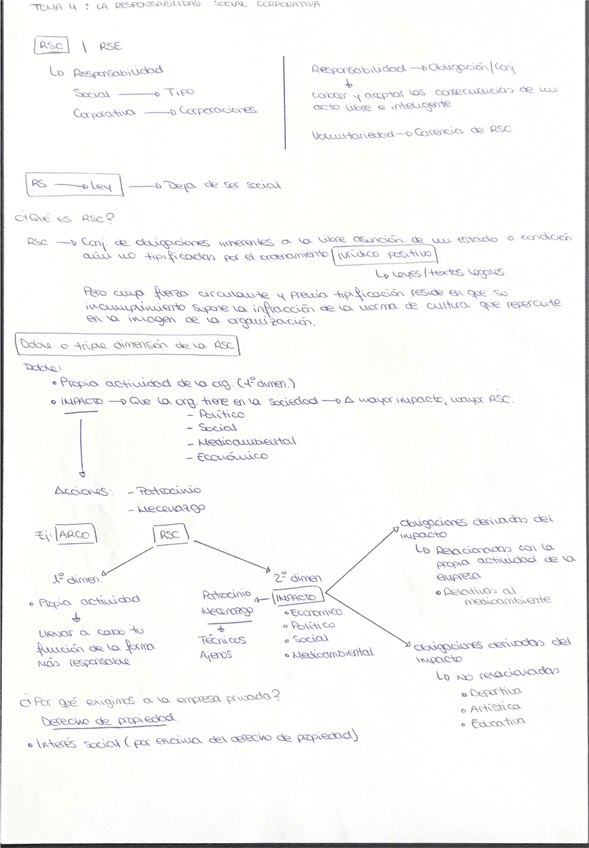 TEMA 4: LA RESPONSABILIDAD SOCIAL CORPORATIVA
RSC | RSE
↳ Responsabilidad
Social → Tipo
Corporativa → Corporaciones
Responsabilidad → Obligación/Conj.
↓
conocer y aceptar las consecuencias de un
acto libre e inteligente
Voluntariedad → Carencia de RSC
RS → Ley → Deja de ser social
¿Qué es RSC?
RSC → Conj. de obligaciones inherentes a la libre asunción de un estado o condición
aún no tipificadas por el ordenamiento jurídico positivo
↳ Leyes/textos legales
Pero cuya fuerza circulante y previa tipificación reside en que su
incumplimiento supone la infracción de la norma de cultura que repercute
en la imagen de la organización.
Doble o triple dimensión de la RSC
Doble:
• Propia actividad de la org. (1ª dimen.)
• IMPACTO → Que la org. tiene en la sociedad → Δ mayor impacto, mayor RSC.
- Político
- Social
- Medioambiental
- Económico
Acciones: - Patrocinio
- Mecenazgo
Ej: ARCO RSC
1ª dimen.
• Propia actividad
↓
Llevar a cabo tu
función de la forma
más responsable
2ª dimen
Patrocinio ← IMPACTO
Mecenazgo
↓
Técnicos
Ajenos
• Económico
• Político
• Social
• Medioambiental
Obligaciones derivadas del
impacto
↳ Relacionadas con la
propia actividad de la
empresa
• Relativas al
medioambiente.
Obligaciones derivadas del
impacto
↳ No relacionadas
• Deportiva
• Artística
• Educativa
¿Por qué exigimos a la empresa privada?
Derecho de propiedad.
• Interés social (por encima del derecho de propiedad)